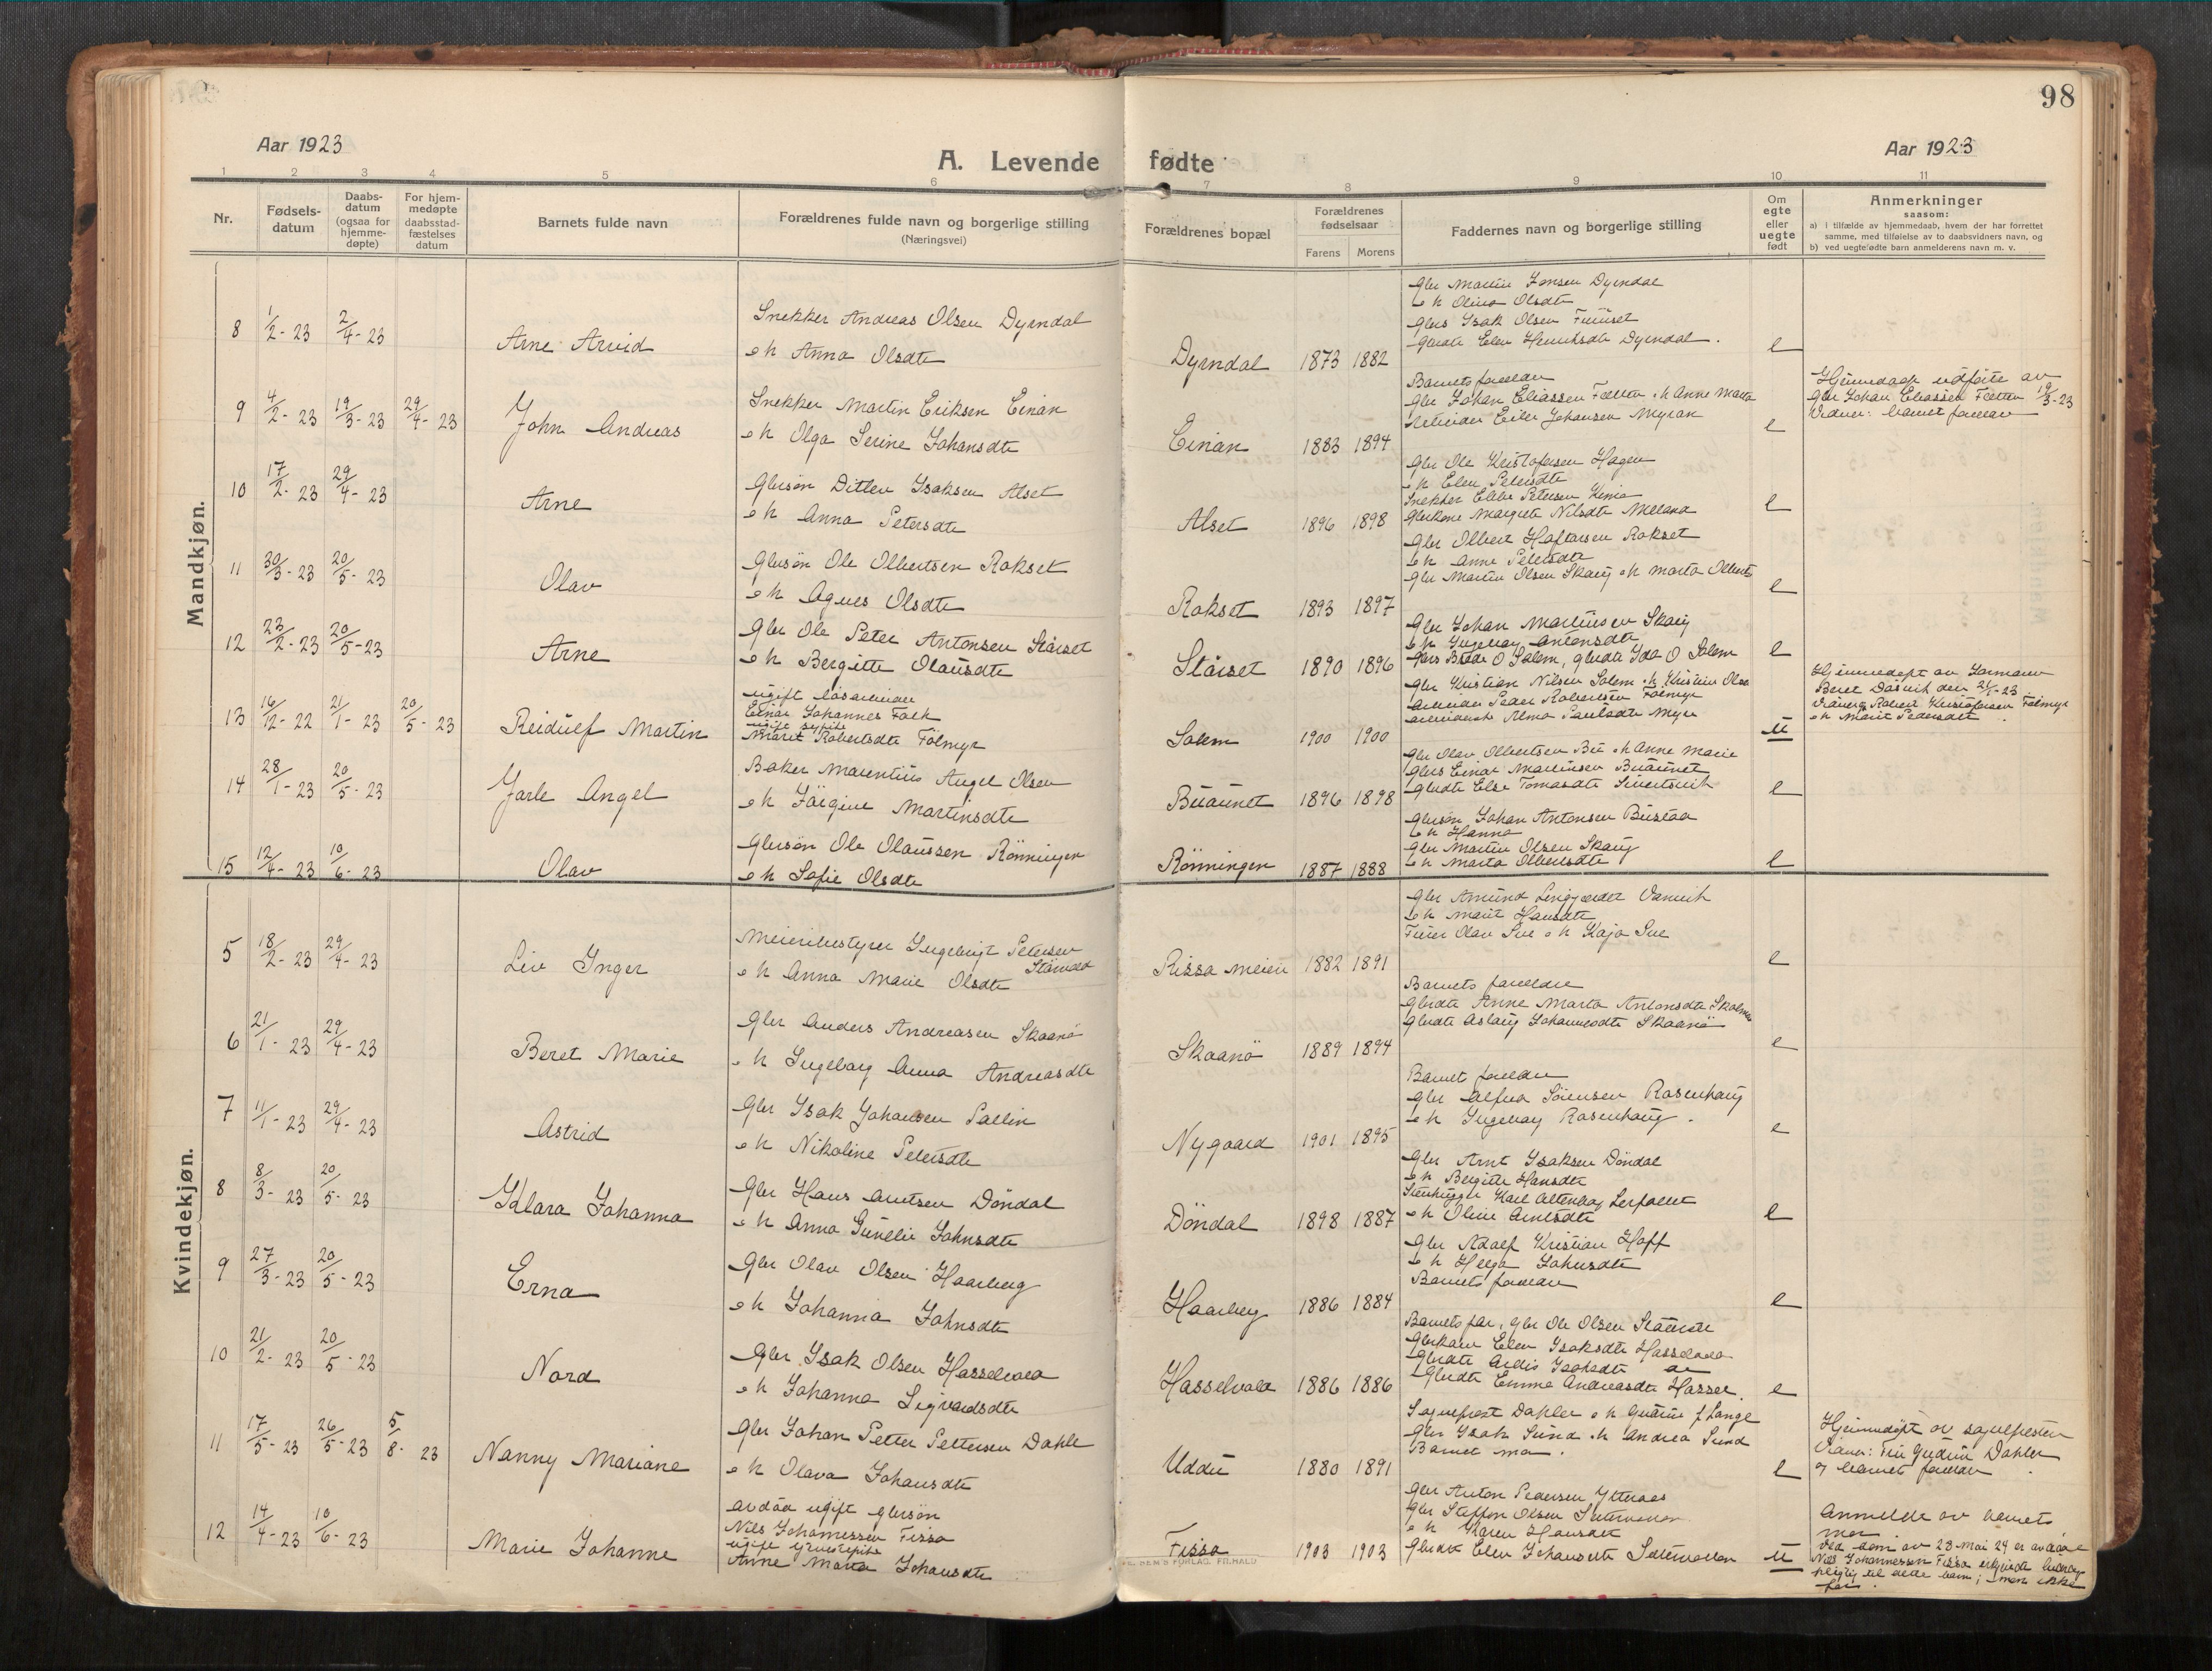 98
Aar 1923
A. Levende fødte
Aar 1923
1 2 3 4 5 6 7 8 9 10 11
Nr.
Fødsels-
datum
Daabs-
datum
(ogsaa for
hjemme-
døpte)
For hjem-
medøpte
daabsstad-
fæstelses
datum
Barnets fulde navn
Forældrenes fulde navn og borgerlige stilling
(Næringsvei)
Forældrenes bopæl
Forældrenes
fødselsaar
Farens Morens
Faddernes navn og borgerlige stilling
Om
egte
eller
uegte
født
Anmerkninger
saasom:
a) i tilfælde av hjemmedaab, hvem der har forrettet
samme, med tilføielse av to daabsvidners navn, og
b) ved uegtefødte barn anmelderens navn m. v.
Mandkjøn.
8 1/2-23 2/4-23 Arne Arvid
Snekker Andreas Olsen Dyrndal
o h Anna Olsdtr
Dyrndal 1873 1882
Gbr Martin Jonsen Dyrndal
o h Olina Olsdtr
Gbrs Isak Olsen
Gbrdtr Elen Henriksdtr Dyrndal. e
9 4/2-23 19/3-23 29/4-23 John Andreas
Snekker Martin Eriksen Einan
o h Olga Serine Johansdtr
Einan 1883 1894
Barnets forældre
Gbr Johan Eliassen o h Anne Marta
Johansen Myran e
Hjemmedaab utførte av
Gbr Johan Eliassen 19/3-23
Vidner: barnets forældre
10 17/2-23 29/4-23 Arne
Gbrsøn Ditlev Isaksen Alset
o h Anna Petersdtr
Alset 1896 1898
Gbr Ole Kristofersen Hagen
o h Elen Petersdtr
Snekker Petersen
Gbrkone Margrete Nilsdtr e
11 30/3-23 20/5-23 Olav
Gbrsøn Ole Olbertsen Rokset
o h Agnes Olsdtr
Rokset 1893 1897
Gbr Olbert Haftorsen Rokset
o h Anne Petersdtr
Gbr Martin Olsen Skaug o h Marta Olbertsd e
12 23/2-23 20/5-23 Arne
Gbr Ole Peter Antonsen Storset
o h Bergitte Olausdtr
Storset 1890 1896
Gbr Johan Martinsen Skaug
o h Ingeborg Antonsdtr
Gbrs O Solem, Gbrdtr Ida O Solem e
13 16/12-22 21/1-23 20/5-23 Reidulf Martin
ugift løsarbeider
Einar Johannes Falk
ugift
Marit Robertsdtr Fölmyr
Solem 1900 1900
Gbr Kristian Nilsen Solem o h Kristine Olsd
arbeider Peder Robertsen Fölmyr
Alma Paulsdtr Myr u
Hjemmedøpt av Jormor
Beret den 21/1-23
Robert Kristofersen Fölmyr
o h Marit Pedersdtr
14 28/1-23 20/5-23 Jarle Angel
Baker Marentius Angel Olsen
o h Jørgine Martinsdtr
Buaunet 1896 1898
Gbr Olav Olbertsen Bu o h Anne Marie
Gbrs Einar Martinsen Buaunet
Gbrdtr Else Tomasdtr e
15 12/4-23 10/6-23 Olav
Gbrsøn Ole Olaussen Rönningen
o h Sofie Olsdtr
Rönningen 1887 1888
Gbrsøn Johan Antonsen
o h Hanna
Gbr Martin Olsen Skaug
o h Marta Olbertsdtr e
Kvindekjøn.
5 18/2-23 29/4-23 Liv Inger
Meieribestyrer Ingebrigt Petersen
o h Anna Marie Olsdtr
Rissa meieri 1882 1891
Gbr Amund
o h Marit Hansdtr
Olav Sve o h Kaja Sve e
6 21/1-23 29/4-23 Beret Marie
Gbr Anders Andreasen Skaanö
o h Ingeborg Anna Andreasdtr
Skaanö 1889 1894
Barnets forældre
Gbrdtr Anne Marta Antonsdtr
Gbrdtr Aslaug Johannesdtr Skaanö e
7 11/1-23 29/4-23 Astrid
Gbr Isak Johansen Sallin
o h Nikoline Petersdtr
Nygaard 1901 1895
Barnets forældre
Gbr Alfred Sörensen Rosenhaug
o h Ingeborg Rosenhaug. e
8 8/3-23 20/5-23 Klara Johanna
Gbr Hans Arntsen Döndal
o h Anna Gunelie Johnsdtr
Döndal 1898 1887
Gbr Arnt Isaksen Döndal
o h Bergitte Hansdtr
Stenhugger Karl
o h Oline Arntsdtr e
9 27/3-23 20/5-23 Erna
Gbr Olav Olsen Haarberg
o h Johanna Johnsdtr
Haarberg 1886 1884
Gbr Adolf Kristian Hoff
o h Helga Johnsdtr
Barnets forældre e
10 21/2-23 20/5-23 Nora
Gbr Isak Olsen Hasselvold
o h Johanna Sigvardsdtr
Hasselvold 1886 1886
Barnets far, Gbr Ole Olsen
Gbrkone Elen Isaksdtr Hasselvold
Gbrdtr Isaksdtr
Gbrdtr Emma Andreasdtr Hassel. e
11 17/5-23 26/5-23 5/8-23 Nanny Mariane
Gbr Johan Petter Pettersen Dahle
o h Olava Johansdtr
Uddu 1880 1891
Sogneprest Dahler o h Gudrun f Lange
Gbr Isak Sund o h Andrea Sund
Barnets mor. e
Hjemmedøpt av sognepresten
Vidner: Fru Gudrun Dahler
og barnets forældre.
12 14/4-23 10/6-23 Marie Johanne
avdød ugift gbrsøn
Nils Johannessen Fissa
ugift
Anne Marta Johansdtr
Fissa 1903 1903
Gbr Anton Pedersen
Gbr Steffen Olsen
o h Karen Hansdtr
Gbrdtr Elen Johansdtr u
Anmeldt av barnets
mor
Ved dom av 23 mai 24 er avdøde
Nils Johannessen Fissa erkjendt bidrag
pligtig til dette barn; men ikke
far.
FORLAG, FR.HALD